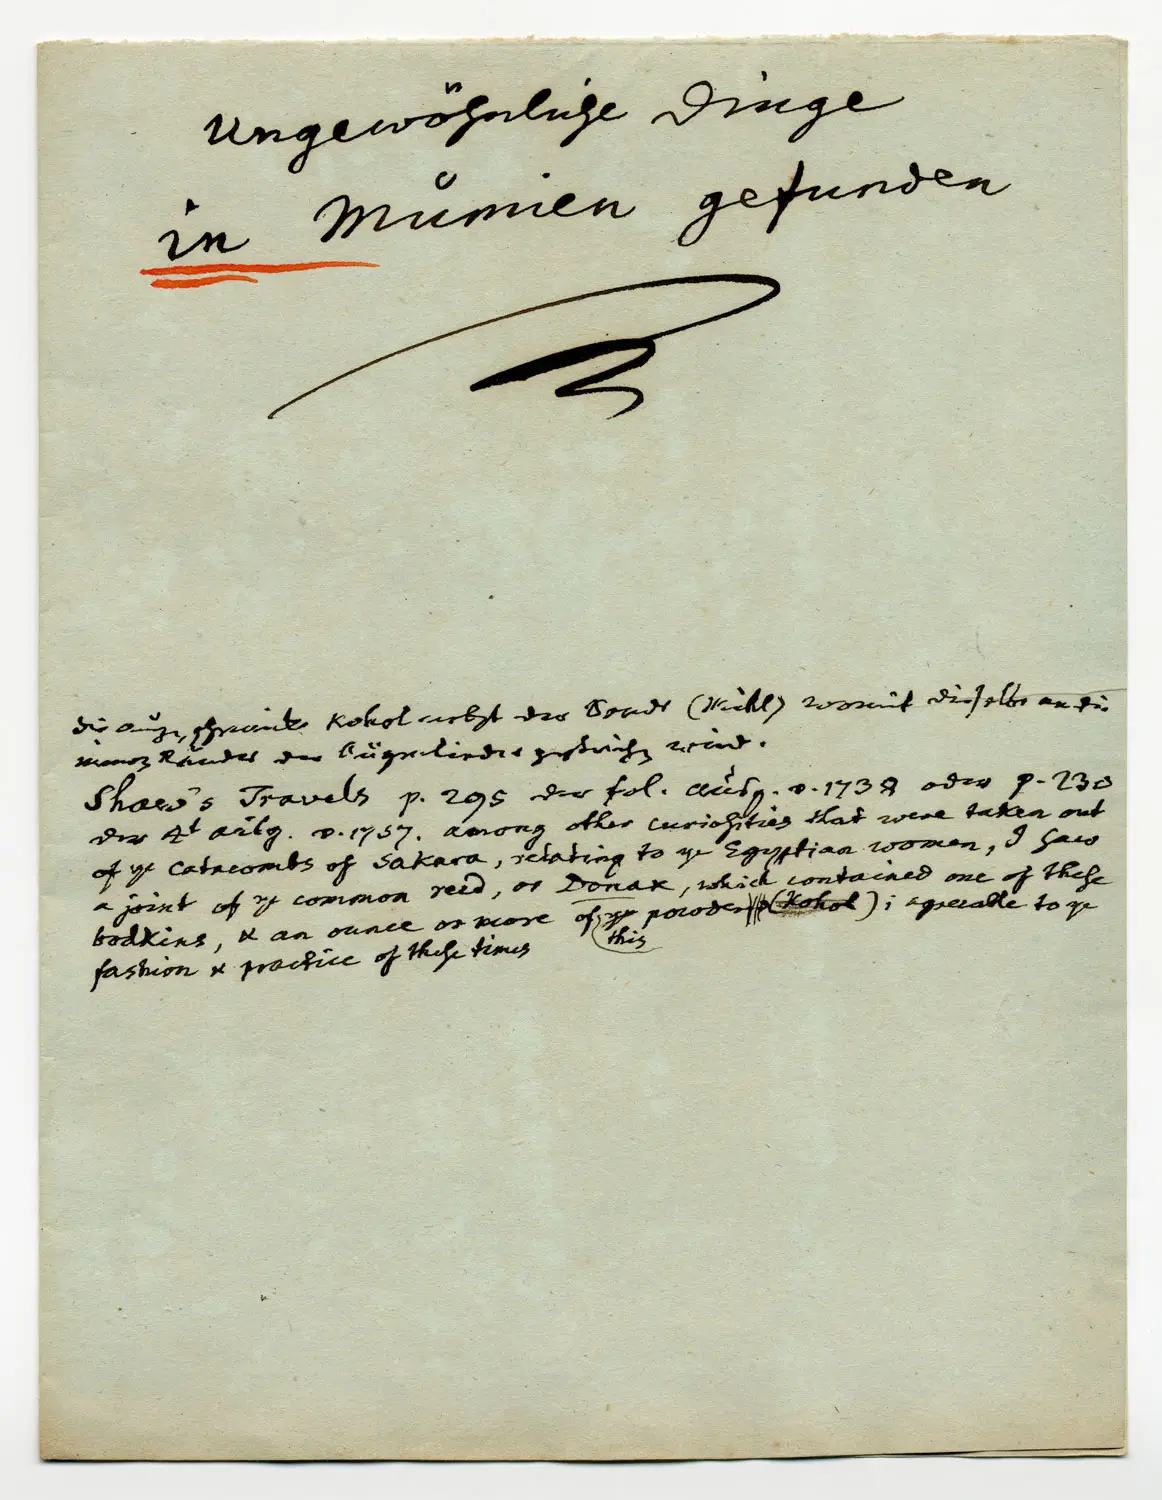 Ungewöhnliche Dinge
in Mumien gefunden
die augenschminke Kohol nebst der Sonde (Mikhl) womit dieselbe an die
innern Ränder der Augenlieder gestrichen wird.
Shaw's Travels p. 295 der fol. ausg. v. 1738 oder p. 230
der 4t ausg. v. 1757. among other curiosities that were taken out
of ye catacombs of Sakara, relating to ye Egyptian women, I saw
a joint of ye common reed, or Donax, which contained one of these
bodkins, & an ounce or more of ye powder (Kohol); agreeable to ye
this
fashion & practice of these times